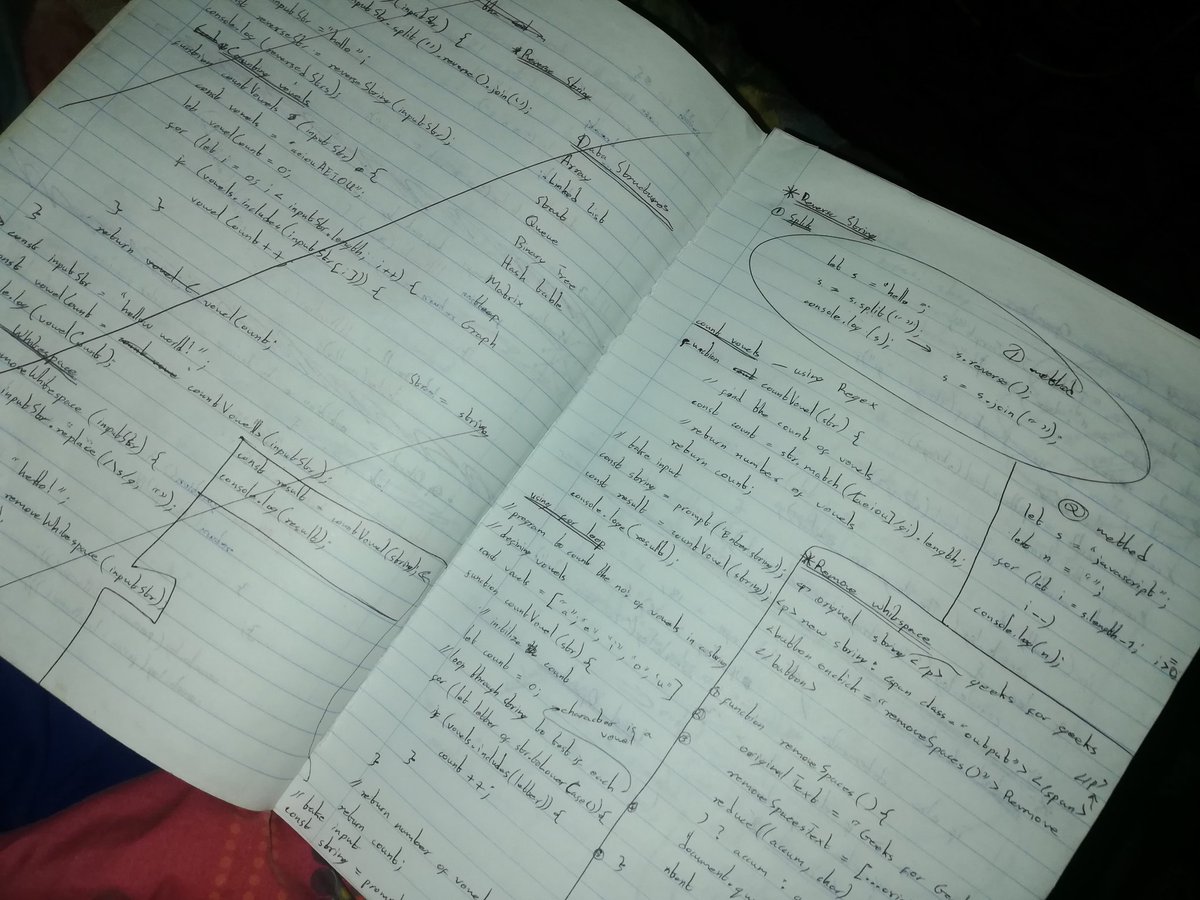 (inputStr) {
inputStr.split('').reverse().join('');
inputStr = "hello";
reverseStr = reverseString(inputStr);
console.log(reversedStrs);
Counting vowels
function countVowels (inputStr) {
const vowels = "aeiouAEIOU";
let vowelCount = 0;
for (let i = 0; i < inputStr.length; i++) {
if (vowels.includes(inputStr[i])) {
vowelCount++
}
}
return vowelCount;
}
const inputStr = "hellow world!";
const vowelCount = countVowels(inputStr);
console.log(vowelCount);
Whitespace
removeWhitespace (inputStr) {
inputStr.replace(/\s/g, "");
"hello!";
removeWhitespace(inputStr);
const result = countVowel(string);
console.log(result);
* Reverse String
Data Structures
Array
Linked list
Queue
Binary Tree
Hash table
Matrix
Graph
string
* Reverse String
① Split
let s = "hello";
s = s.split("");
console.log(s); → s.reverse();
s = s.join("");
① method
count vowels — using Regex
function countVowel(str) {
// find the count of vowels
const count = str.match(/[aeiou]/gi).length;
// return number of vowels
return count;
// take input
const string = prompt("Enter string");
const result = countVowel(string);
console.log(result);
② method
let s = "javascript";
let n = "";
for (let i = s.length-1; i>=0
i--)
console.log(n);
using for loop
// program to count the no, of vowels in a string
// defining vowels
const vowels = ["a", "e", "i", "o", "u"]
function countVowel(str) {
// initilize count
let count = 0;
// loop through string to test is each
character is a vowel
for (let letter of str.toLowerCase()) {
if (vowels.includes(letter)) {
count++;
}
}
// return number of vowel
return count;
// take input
const string = prom
* Remove whitespace
<p> original string </p> - geeks for geeks
<p> new string: <span class="output"> </span>
</p>
<button onclick="removeSpaces()"> Remove
</button>
function removeSpaces() {
originalText = "Geeks for Ge
removeSpacesText = [...ori
reduce((accum, char)
) ? accum :
document.qu
}